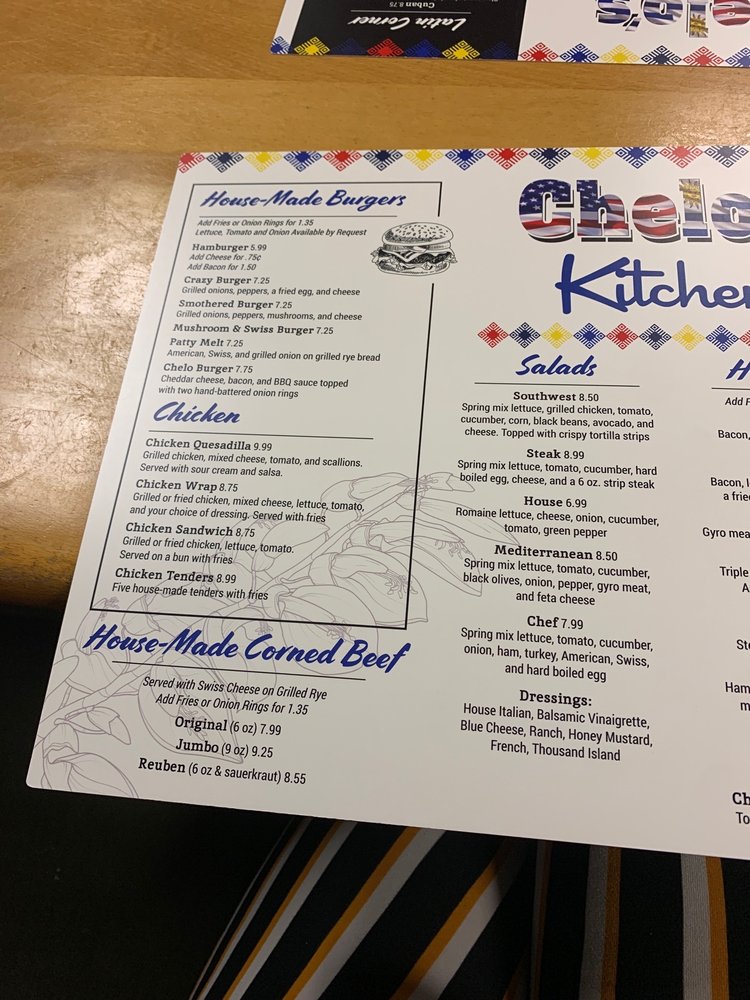 Latin Corner
Cuban 8.75
House-Made Burgers
Add Fries or Onion Rings for 1.35
Lettuce, Tomato and Onion Available by Request
Hamburger 5.99
Add Cheese for .75¢
Add Bacon for 1.50
Crazy Burger 7.25
Grilled onions, peppers, a fried egg, and cheese
Smothered Burger 7.25
Grilled onions, peppers, mushrooms, and cheese
Mushroom & Swiss Burger 7.25
Patty Melt 7.25
American, Swiss, and grilled onion on grilled rye bread
Chelo Burger 7.75
Cheddar cheese, bacon, and BBQ sauce topped
with two hand-battered onion rings
Chicken
Chicken Quesadilla 9.99
Grilled chicken, mixed cheese, tomato, and scallions.
Served with sour cream and salsa.
Chicken Wrap 8.75
Grilled or fried chicken, mixed cheese, lettuce, tomato,
and your choice of dressing. Served with fries
Chicken Sandwich 8.75
Grilled or fried chicken, lettuce, tomato.
Served on a bun with fries
Chicken Tenders 8.99
Five house-made tenders with fries
House-Made Corned Beef
Served with Swiss Cheese on Grilled Rye
Add Fries or Onion Rings for 1.35
Original (6 oz) 7.99
Jumbo (9 oz) 9.25
Reuben (6 oz & sauerkraut) 8.55
Chelo
Kitchen
Salads
Southwest 8.50
Spring mix lettuce, grilled chicken, tomato,
cucumber, corn, black beans, avocado, and
cheese. Topped with crispy tortilla strips
Steak 8.99
Spring mix lettuce, tomato, cucumber, hard
boiled egg, cheese, and a 6 oz. strip steak
House 6.99
Romaine lettuce, cheese, onion, cucumber,
tomato, green pepper
Mediterranean 8.50
Spring mix lettuce, tomato, cucumber,
black olives, onion, pepper, gyro meat,
and feta cheese
Chef 7.99
Spring mix lettuce, tomato, cucumber,
onion, ham, turkey, American, Swiss,
and hard boiled egg
Dressings:
House Italian, Balsamic Vinaigrette,
Blue Cheese, Ranch, Honey Mustard,
French, Thousand Island
H
Add F
Bacon,
Bacon, l
a frie
Gyro mea
Triple
A
Ste
Ham
m
Ch
To